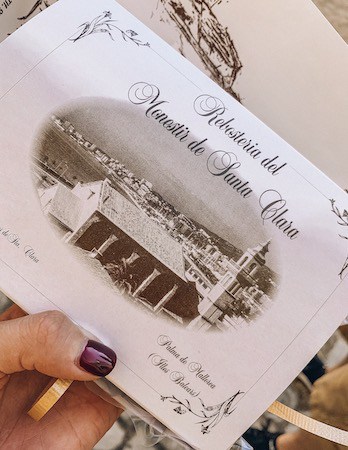 Rebosteria del
Monestir de Santa Clara
de Sta. Clara
Palma de Mallorca
(Illes Balears)